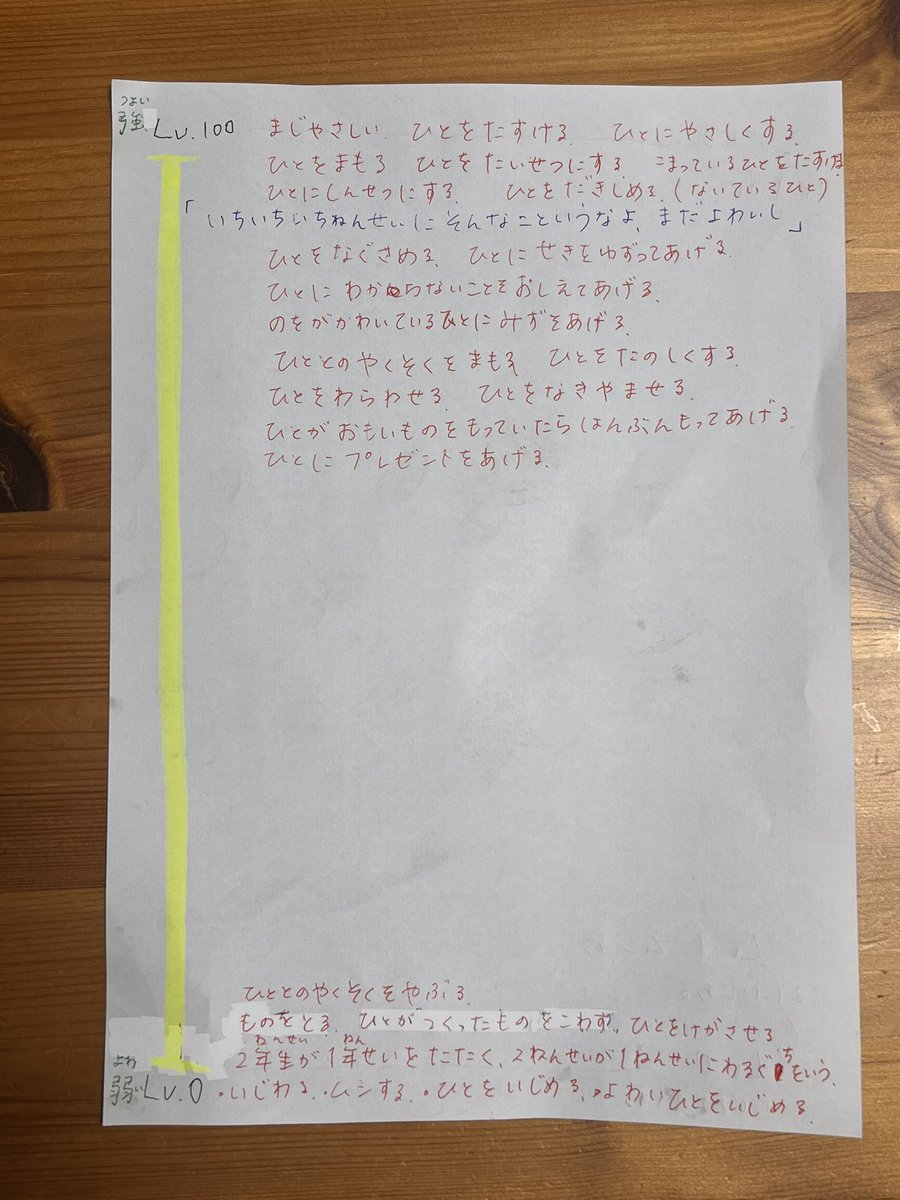 つよい
強 Lv.100 まじやさしい ひとをたすける、 ひとにやさしくする、
ひとをまもる ひとをたいせつにする、 こまっているひとをたすけ
ひとにしんせつにする、 ひとをだきしめる、(ないているひと)
「いちいちいちねんせいにそんなこというなよ、まだよわいし」
ひとをなぐさめる、 ひとにせきをゆずってあげる、
ひとにわからないことをおしえてあげる、
のをがかわいているひとにみずをあげる、
ひととのやくそくをまもる ひとをたのしくする、
ひとをわらわせる、 ひとをなきやませる、
ひとがおもいものをもっていたらはんぶんもってあげる、
ひとにプレゼントをあげる、
ひととのやくそくをやぶる、
ものをとる、 ひとがつくったものをこわす、 ひとをけがさせる
ねんせい ねん
2年生が1年せいをたたく、2ねんせいが1ねんせいにわるぐちをいう、
よわ
弱い Lv.0 ・いじわる、・ムシする、・ひとをいじめる、・よわいひとをいじめる、